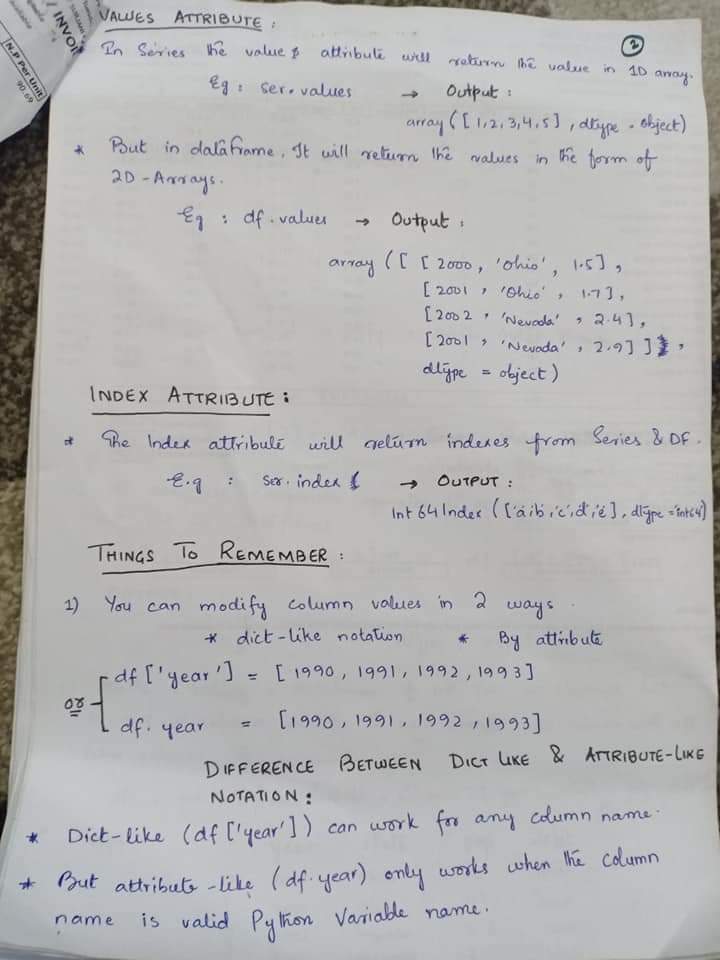 INVO
N.P Per Unit
90.69
2
VALUES ATTRIBUTE :
* In Series the values attribute will return the value in 1D array.
Eg : ser.values → Output :
array ([1,2,3,4,5], dtype = object)
* But in dataframe, It will return the values in the form of
2D-Arrays.
Eg : df.values → Output :
array ([ [ 2000, 'Ohio', 1.5],
[ 2001, 'Ohio', 1.7],
[2002, 'Nevada', 2.4],
[2001, 'Nevada', 2.9] ],
dtype = object)
INDEX ATTRIBUTE :
* The Index attribute will return indexes from Series & DF.
E.g : ser.index → OUTPUT :
Int 64 Index (['a','b','c','d','e'], dtype = 'int64')
THINGS TO REMEMBER :
1) You can modify column values in 2 ways.
* dict-like notation * By attribute
df ['year'] = [1990, 1991, 1992, 1993]
or
df.year = [1990, 1991, 1992, 1993]
DIFFERENCE BETWEEN DICT LIKE & ATTRIBUTE-LIKE
NOTATION :
* Dict-like (df ['year']) can work for any column name.
* But attribute-like (df.year) only works when the column
name is valid Python Variable name.